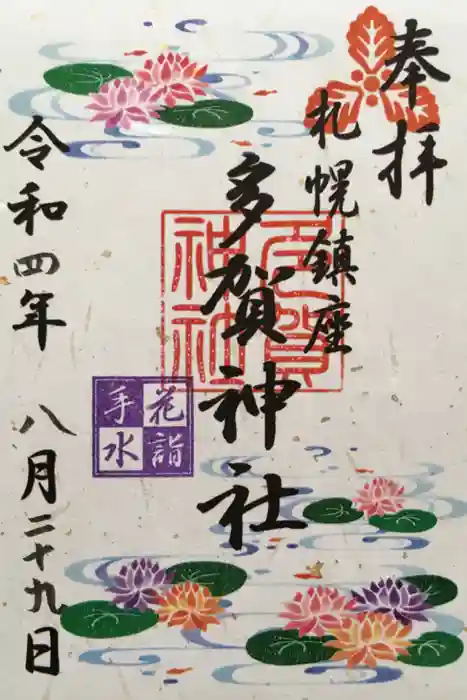 奉拝
札幌鎮座
多賀神社
多賀神社
花詣
手水
令和四年 八月二十九日